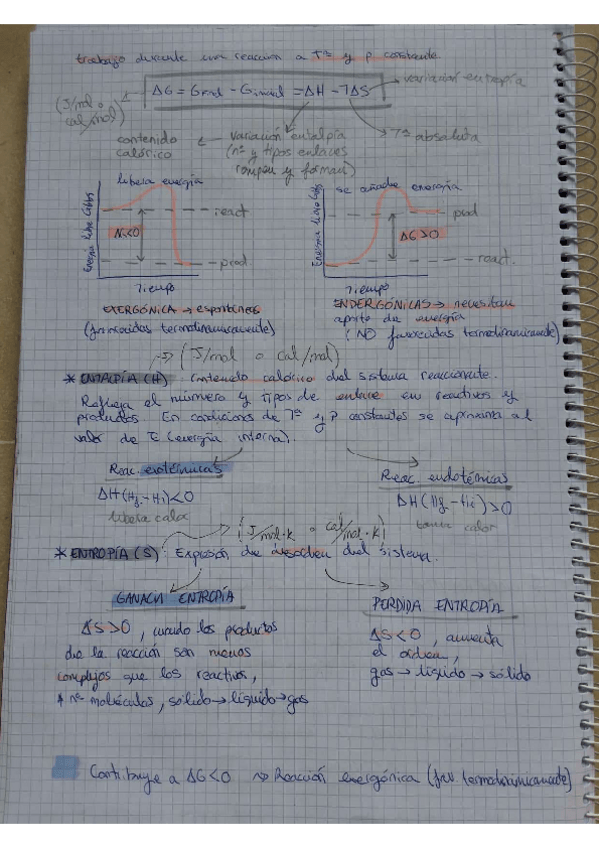 trabajo durante una reacción a Tª y p constante.
ΔG = Gfinal - Ginicial = ΔH - TΔS → variación entropía
(J/mol o cal/mol)
contenido calórico ← variación entalpía (nº y tipos enlaces rompen y forman)
Tª absoluta
libera energía
se añade energía
Energía libre Gibbs
react
<0
prod
Tiempo
Energía libre Gibbs
prod
ΔG>0
react.
Tiempo
EXERGÓNICA → espontáneas
(favorecidas termodinámicamente)
ENDERGÓNICAS → necesitan
aporte de energía
(NO favorecidas termodinámicamente)
→ (J/mol o cal/mol)
* ENTALPÍA (H): contenido calórico del sistema reaccionante.
Refleja el número y tipos de enlace en reactivos y
productos. En condiciones de Tª y P constantes se aproxima al
valor de E (energía interna).
Reac. exotérmicas
ΔH (Hf - Hi) < 0
libera calor
Reac. endotérmicas
ΔH (Hf - Hi) > 0
toman calor
(J/mol·K o cal/mol·K)
* ENTROPÍA (S): Expresión de desorden del sistema.
GANACIA ENTROPÍA
ΔS>0, cuando los productos
de la reacción son menos
complejos que los reactivos,
nº moléculas, sólido → líquido → gas
PERDIDA ENTROPÍA
ΔS<0, aumenta
el orden,
gas → líquido → sólido
Contribuye a ΔG<0 ↝ Reacción exergónica (fav. termodinámicamente)